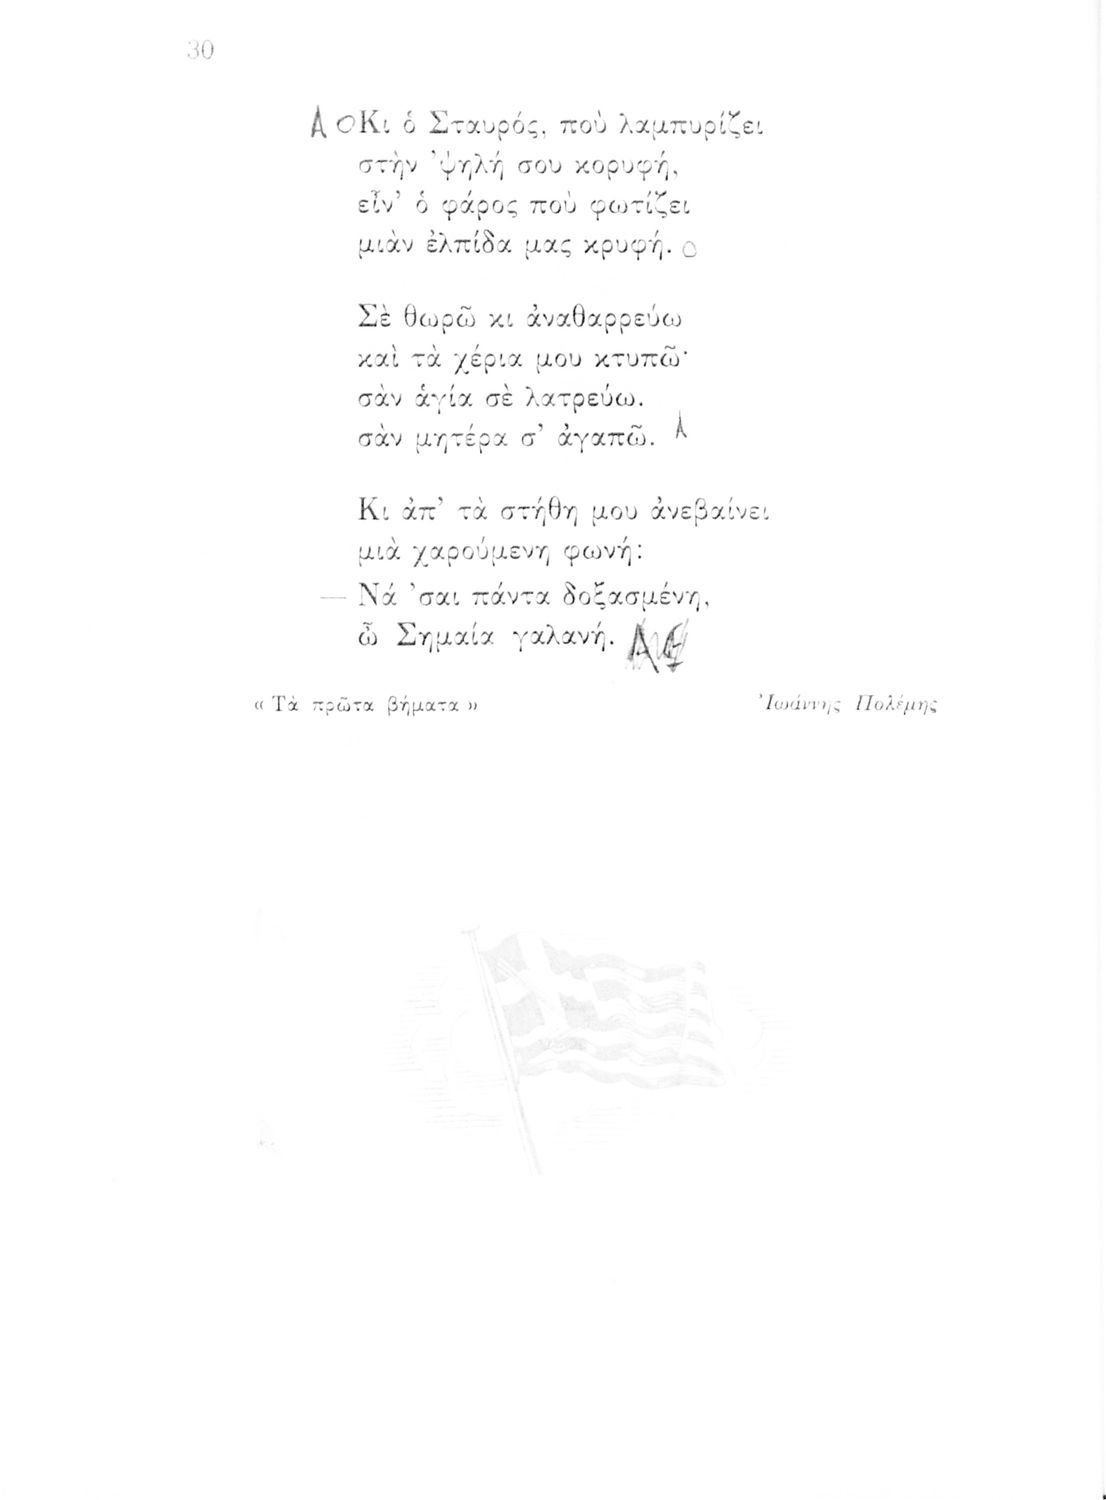 30
Α ο Κι ὁ Σταυρός, ποὺ λαμπυρίζει
στὴν ᾿ψηλή σου κορυφή,
εἶν᾿ ὁ φάρος ποὺ φωτίζει
μιὰν ἐλπίδα μας κρυφή. ο
Σὲ θωρῶ κι ἀναθαρρεύω
καὶ τὰ χέρια μου κτυπῶ·
σὰν ἁγία σὲ λατρεύω.
σὰν μητέρα σ᾿ ἀγαπῶ. Α
Κι ἀπ᾿ τὰ στήθη μου ἀνεβαίνει
μιὰ χαρούμενη φωνή:
— Νά ᾿σαι πάντα δοξασμένη,
ὦ Σημαία γαλανή.
« Τὰ πρῶτα βήματα » Ἰωάννης Πολέμης